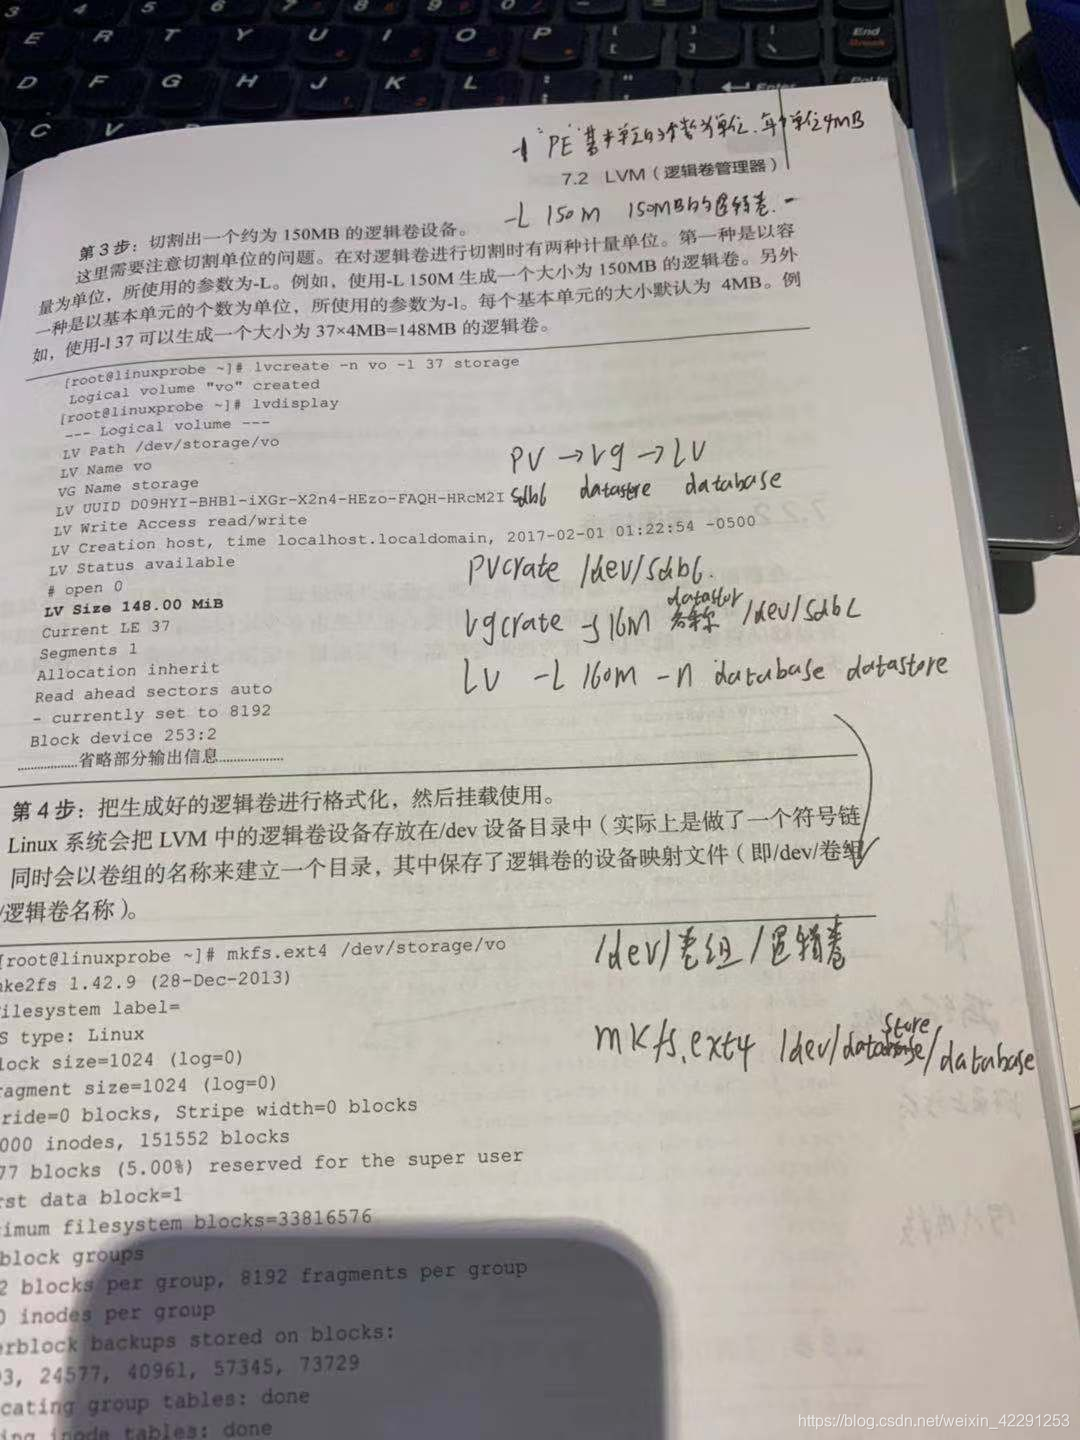 E R T Y U I O P
End
Break
D F G H J K L
Enter
C V
-l "PE" 基本单元的个数为单位. 每个单位4MB
7.2 LVM（逻辑卷管理器）
-L 150m 150MB的逻辑卷.
第3步：切割出一个约为 150MB 的逻辑卷设备。
这里需要注意切割单位的问题。在对逻辑卷进行切割时有两种计量单位。第一种是以容
量为单位，所使用的参数为-L。例如，使用-L 150M 生成一个大小为 150MB 的逻辑卷。另外
一种是以基本单元的个数为单位，所使用的参数为-l。每个基本单元的大小默认为 4MB。例
如，使用-l 37 可以生成一个大小为 37×4MB=148MB 的逻辑卷。
[root@linuxprobe ~]# lvcreate -n vo -l 37 storage
Logical volume "vo" created
[root@linuxprobe ~]# lvdisplay
--- Logical volume ---
LV Path /dev/storage/vo
LV Name vo
VG Name storage
LV UUID D09HYI-BHBl-iXGr-X2n4-HEzo-FAQH-HRcM2I
LV Write Access read/write
LV Creation host, time localhost.localdomain, 2017-02-01 01:22:54 -0500
LV Status available
# open 0
LV Size 148.00 MiB
Current LE 37
Segments 1
Allocation inherit
Read ahead sectors auto
- currently set to 8192
Block device 253:2
………………省略部分输出信息………………
PV →vg →LV
sdb6 datastore database
pvcrate /dev/sdb6.
datastor
vgcrate -s 16M 名称 /dev/sdb6
LV -L 160m -n database datastore
第4步：把生成好的逻辑卷进行格式化，然后挂载使用。
Linux 系统会把 LVM 中的逻辑卷设备存放在/dev 设备目录中（实际上是做了一个符号链
同时会以卷组的名称来建立一个目录，其中保存了逻辑卷的设备映射文件（即/dev/卷组
/逻辑卷名称）。
[root@linuxprobe ~]# mkfs.ext4 /dev/storage/vo
ke2fs 1.42.9 (28-Dec-2013)
ilesystem label=
S type: Linux
lock size=1024 (log=0)
ragment size=1024 (log=0)
ride=0 blocks, Stripe width=0 blocks
000 inodes, 151552 blocks
77 blocks (5.00%) reserved for the super user
rst data block=1
imum filesystem blocks=33816576
block groups
2 blocks per group, 8192 fragments per group
0 inodes per group
erblock backups stored on blocks:
3, 24577, 40961, 57345, 73729
cating group tables: done
ing inode tables: done
/dev/卷组/逻辑卷
store
mkfs.ext4 /dev/data/database
https://blog.csdn.net/weixin_42291253